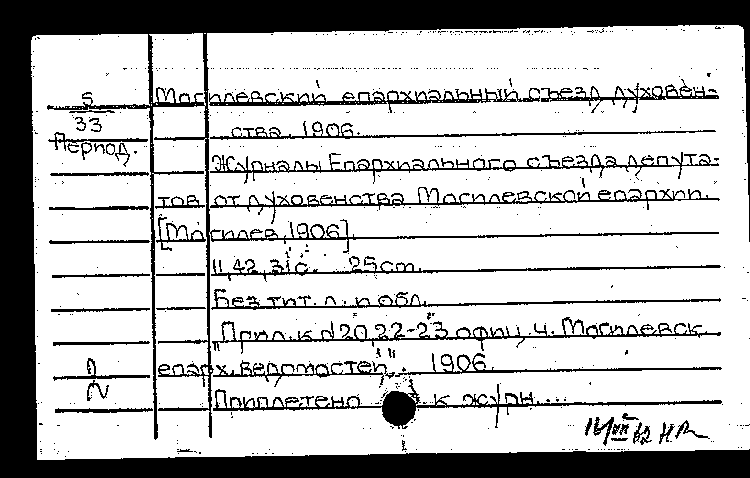 5
33
Период.
Могилевский епархиальный съезд духовен-
ства. 1906.
Журналы Епархиального съезда депута-
тов от духовенства Могилевской епархии.
[Могилев, 1906].
11, 42, 31 с. 25 cm.
Без тит. л. и обл.
"Прил. к № 20, 22-23 офиц. ч. Могилевск.
епарх. ведомостей". 1906.
Приплетено к журн....